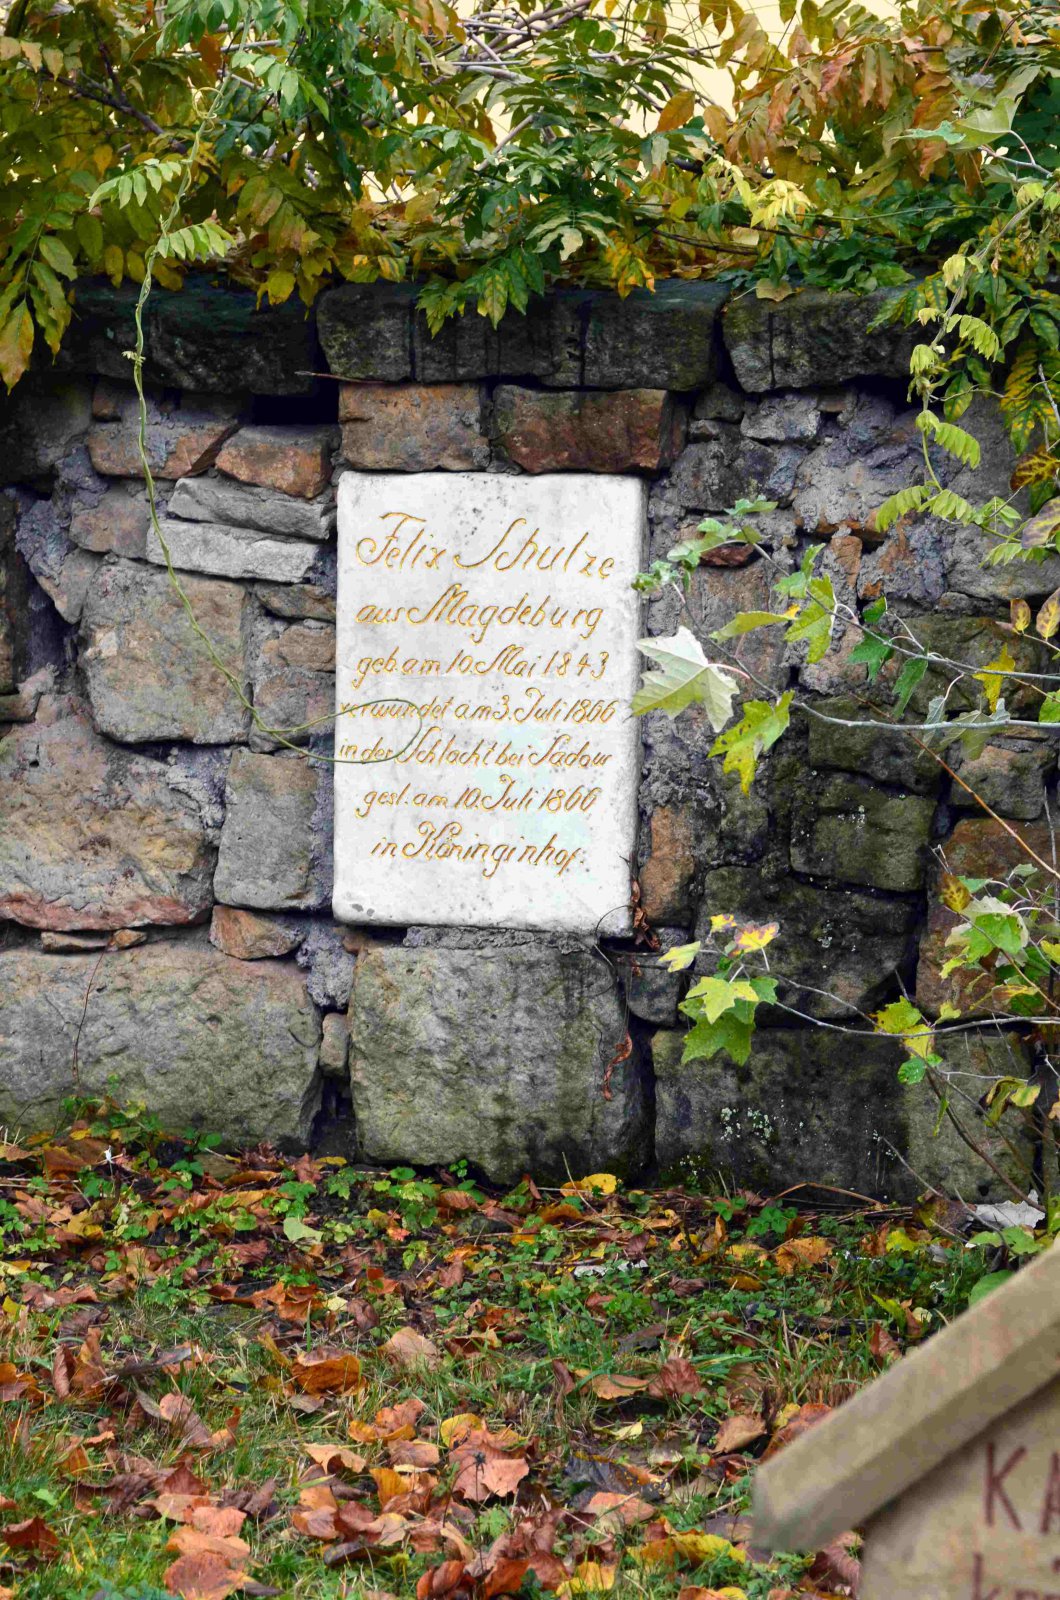 Felix Schulze
aus Magdeburg
geb. am 10. Mai 1843
verwundet am 3. Juli 1866
in der Schlacht bei Sadow
gest. am 10. Juli 1866
in Köninginhof.